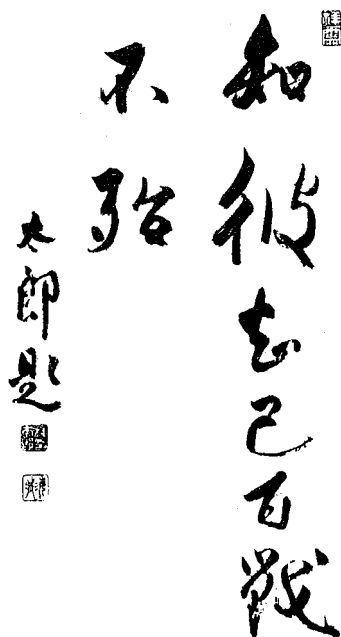 知彼知己百戰
不殆
太郎題